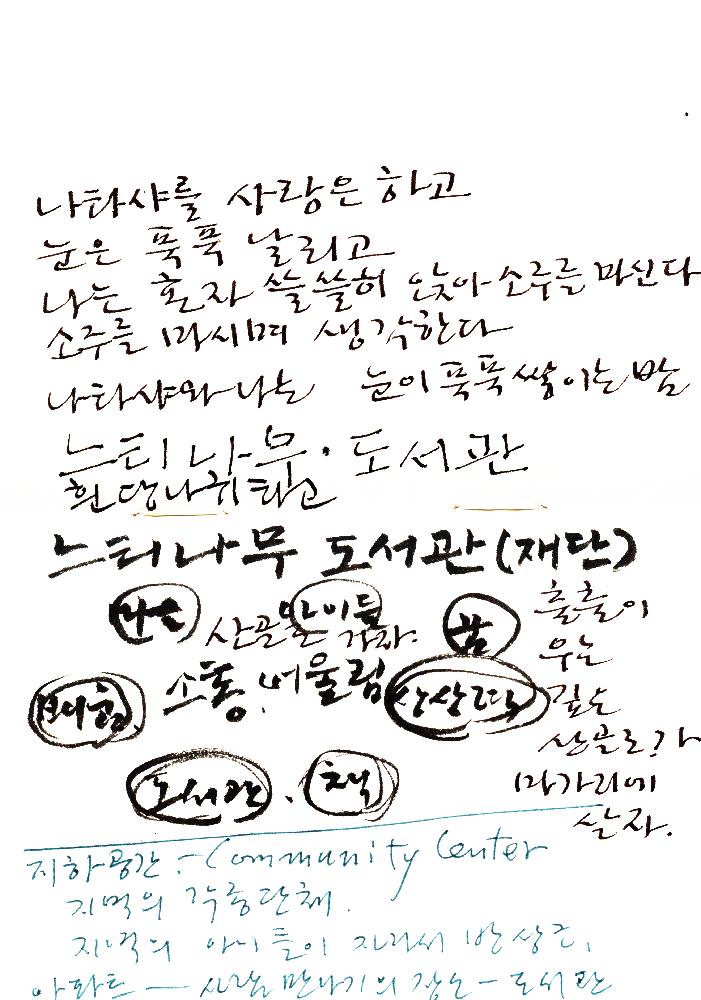 나타샤를 사랑은 하고
눈은 푹푹 날리고
나는 혼자 쓸쓸히 앉아 소주를 마신다
소주를 마시며 생각한다
나타샤와 나는 눈이 푹푹 쌓이는 밤
느티나무·도서관
흰 당나귀 타고
느티나무 도서관(재단)
나눔 산골로 아이들 가자. 꿈 출출이
우는
소통, 어울림 상상력 깊은
산골로 가
도서관. 책 마가리에
살자.
지하공간 :- Community Center
지역의 각종단체.
지역의 아이들이 자라서
아파트 — 사람 만나기의 장소 - 도서관